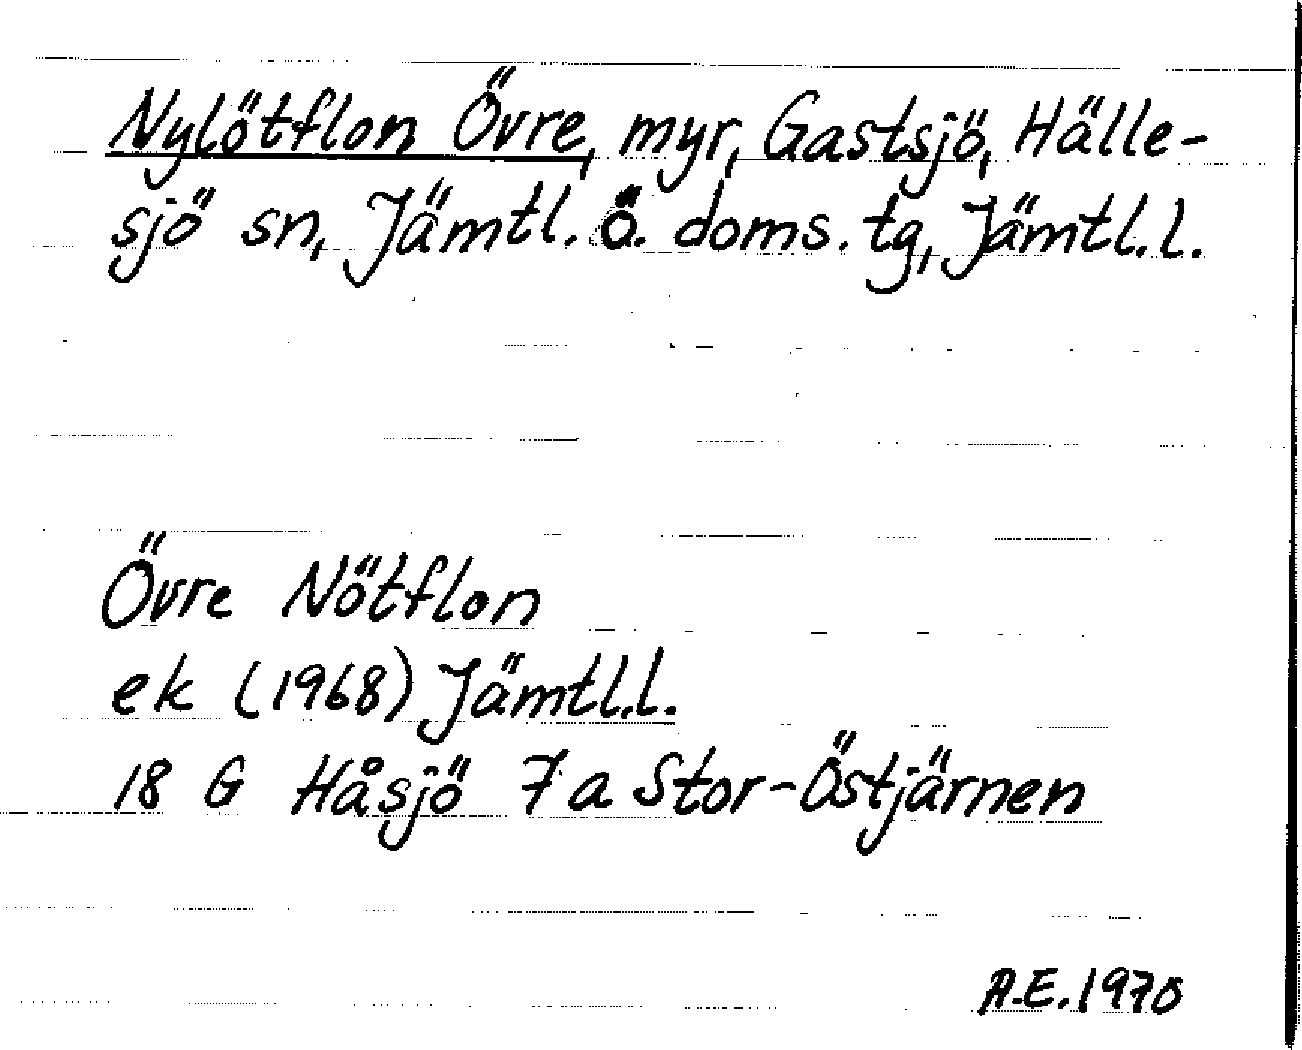 Nylötflon Övre, myr, Gastsjö, Hälle-
sjö sn, Jämtl. ö. doms. tg, Jämtl. l.
Övre Nötflon
ek (1968) Jämtl.l.
18 G Håsjö 7a Stor-Östjärnen
A.E. 1970